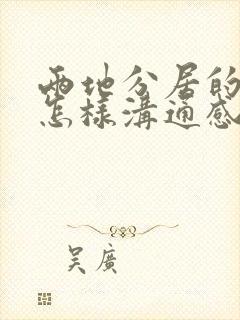 兩地分居的
怎樣溝通感
吳廣